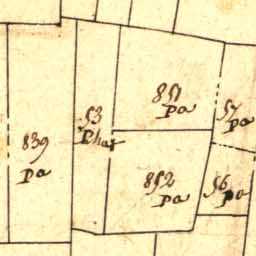 851
pa
53
Char
57
pa
839
pa
852
pa
56
pa